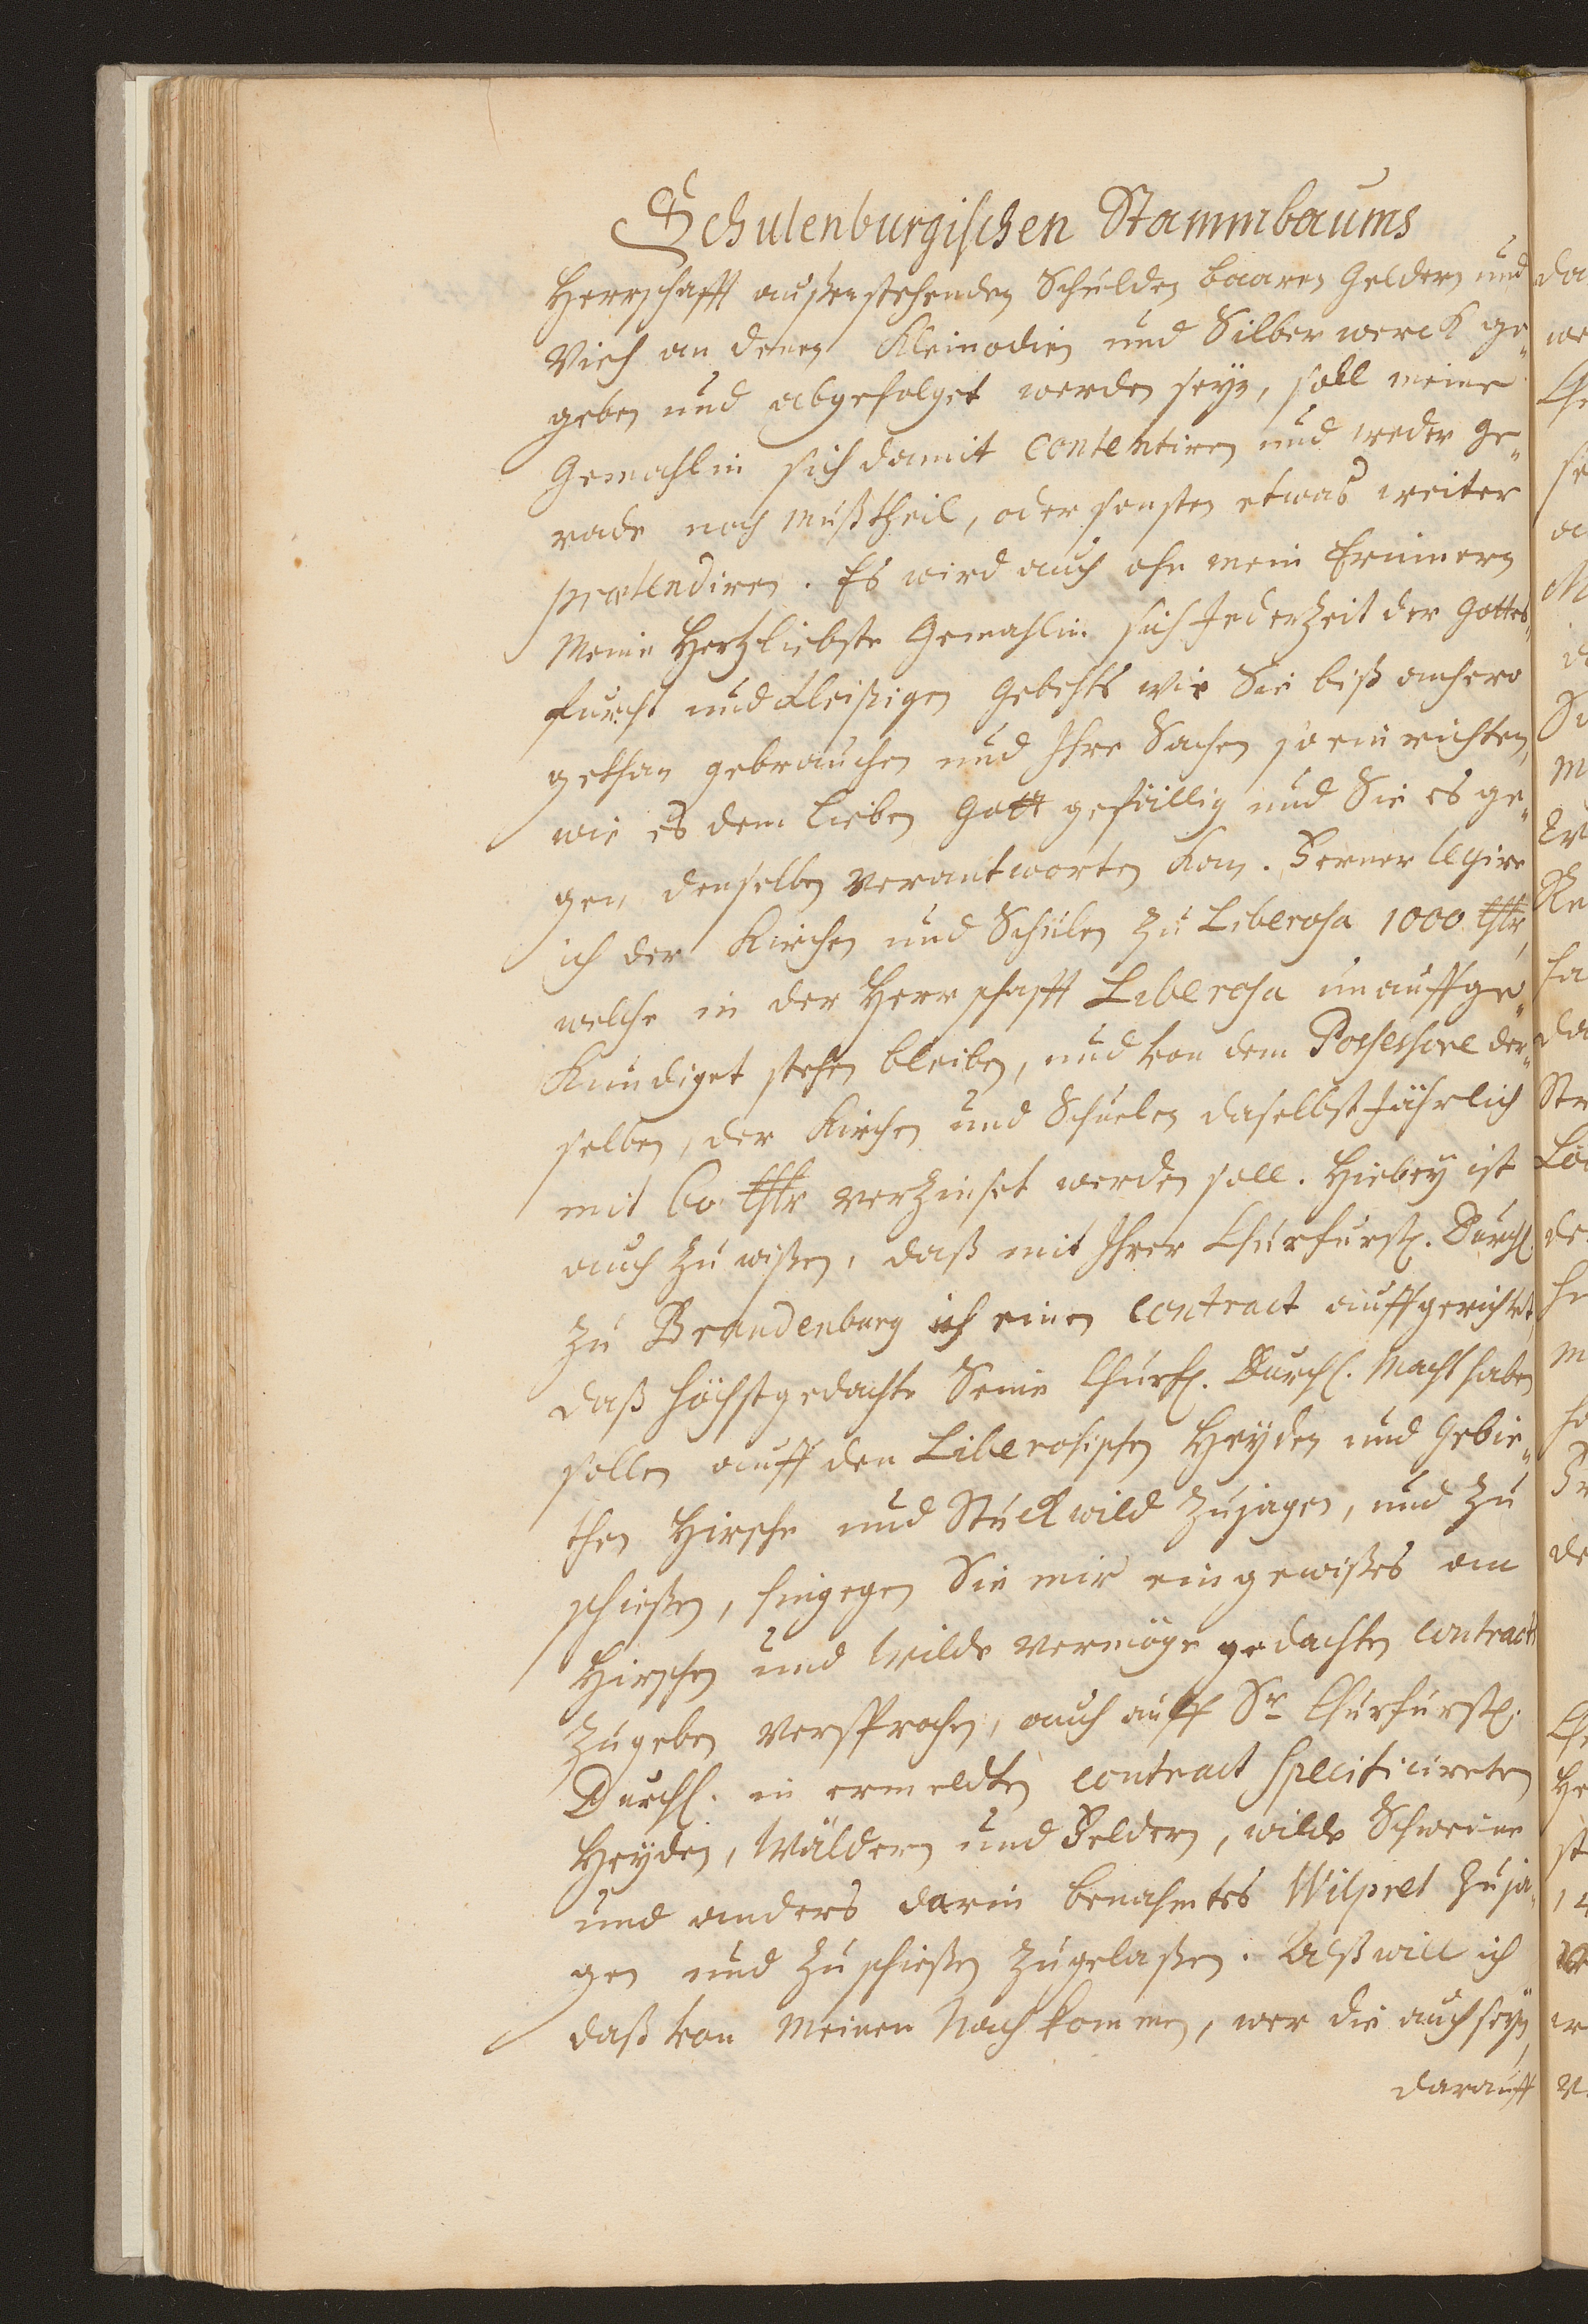 Schulenburgischen Stammbaums
Herrschafft außenstehenden Schulden baaren Geldern und
Vieh an denen Kleinodien und Silberwerck ge„
geben und abgefolget werden seyn, soll meine
Gemahlin sich damit contentiren und weder ge„
rade noch mußtheil, oder sonsten etwas weiter
prætendiren. Es wird auch ohn mein Erinnern
Meine Hertzliebste Gemahlin sich Jederzeit der Gottes„
furcht und fleißigen Gebehts wie Sie biß anhero
gethan gebrauchen und Ihre Sachen so einrichten,
wie es dem lieben Gott gefällig und Sie es ge„
gen denselben verantworten kan. Ferner legire
ich der Kirchen und Schulen zu Liberosa 1000 thlr,
welche in der Herrschafft Liberosa unauffge„
kundiget stehen bleiben, und von dem Possessore der„
selben, der Kirchen und Schuelen daselbst Jährlich
mit 60 thlr verzinset werden soll. Hiebey ist
auch zu wißen, daß mit Ihrer Churfürstl. Durchl.
zu Brandenburg ich einen contract auffgerichtet,
daß höchstgedachte Seine Churfl. Durchl. Macht haben
sollen auff den Liberosischen Heyden und Gebie„
then Hirsche und Stuckwild zujagen, und zu
schießen, hingegen Sie mir ein gewißes am
Hirschen und Wilde vermöge gedachten contract
zugeben versprochen, auch auff Sr Churfürstl.
Durchl. in ermeldten contract specificireten
Heyden, Wäldern und Feldern, wilde Schweine
und anders darin benahmtes Wilpret zuja„
gen und zu schießen zugelaßen. Alß will ich
daß von meinen Nachkommen, wer die auch seyn,
darauff